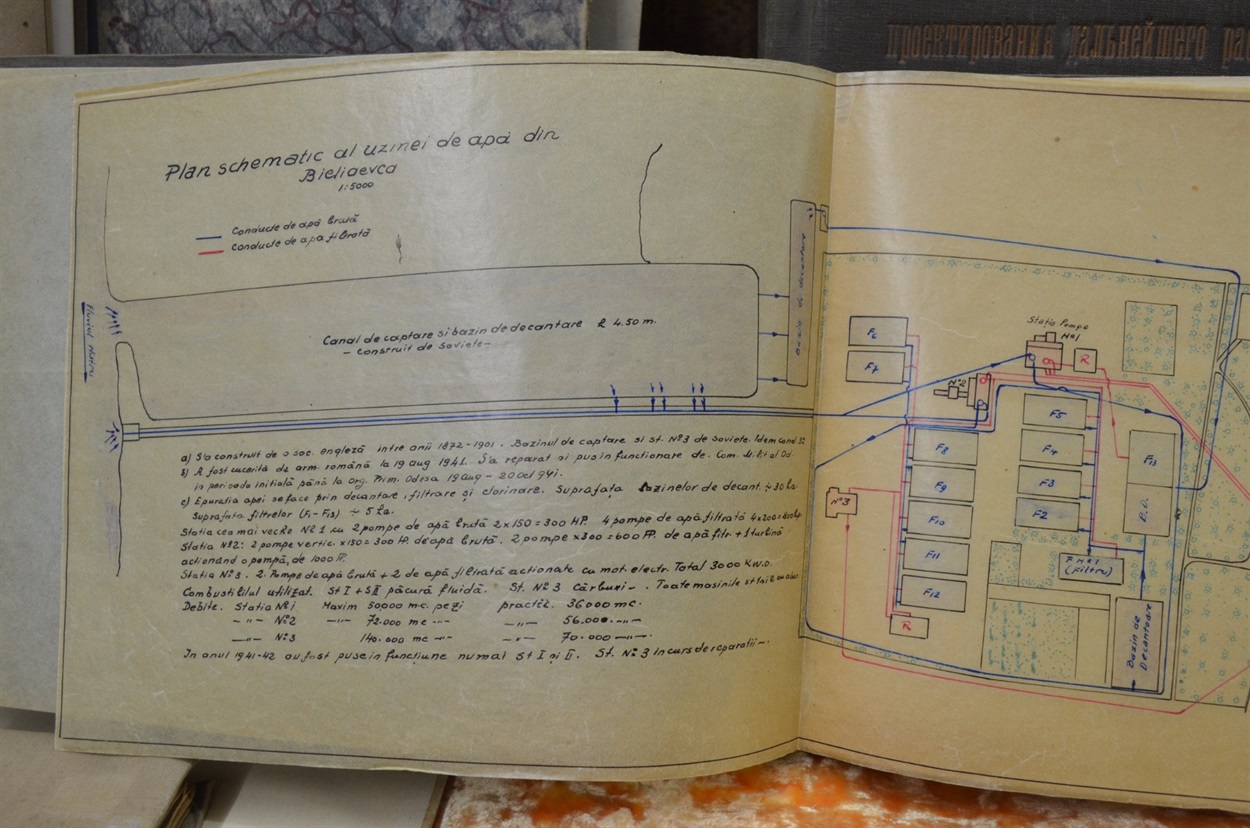 проектирования дальнейшего ра
Plan schematic al uzinei de apă din
Bieliaevca
1:5000
Conducte de apă brută
Conducte de apă filtrată
Fluviul Nistru
Canal de captare si bazin de decantare 4.50 m.
- Construit de Soviete -
Bazin de decantare
a) S'a construit de o soc. engleză între anii 1872-1901. Bazinul de captare si st. No 3 de Soviete. Idem cond.
b) A fost cucerită de arm. română la 19 aug 1941. S'a reparat si pus in functionare de Com. Milit. al Od.
in perioada initială până la org. Prim. Odesa 19 aug - 20 oct 941.
c) Epuratia apei se face prin decantare, filtrare și clorinare. Suprafața bazinelor de decant. ÷ 30 ha
Suprafața filtrelor (F1-F13) ÷ 5 ha.
Statia cea mai veche No 1 cu 2 pompe de apă brută 2x150=300 HP. 4 pompe de apă filtrată 4x200=800 hp
Statia No 2: 2 pompe vertic. x150=300 HP. de apă brută. 2 pompe x300=600 HP. de apă filtr. + 1 turbină
actionând o pompă, de 1000 HP.
Statia No 3. 2 Pompe de apă brută + 2 de apă filtrată actionate cu mot. electr. Total 3000 K.W.O.
Combustibilul utilizat. St I + S II păcură fluidă. St. No 3 Cărbuni -. Toate masinile st I și II
Debite. Statia No 1 Maxim 50000 mc. pe zi practic. 36000 mc.
-"- No 2 -"- 72.000 mc -"- -"- 56.000 -"-
-"- No 3 140.000 mc -"- -"- 70.000 -"-
In anul 1941-42 au fost puse in funcțiune numai St I și II. St. No 3 in curs de reparatii -.
Statia Pompe
No 1
R
No 2
F6
F7
F5
F4
F3
F2
F13
F8
F9
F10
F11
F12
No 3
R
B.D.
F No 1
(Filtru)
Bazin de
Decantare